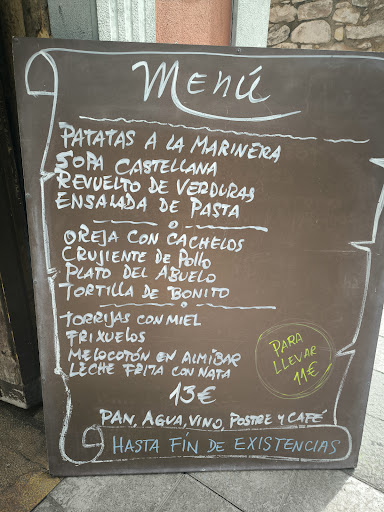 MENÚ
PATATAS A LA MARINERA
SOPA CASTELLANA
REVUELTO DE VERDURAS
ENSALADA DE PASTA
OREJA CON CACHELOS
CRUJIENTE DE POLLO
PLATO DEL ABUELO
TORTILLA DE BONITO
TORRIJAS CON MIEL
FRIXUELOS
MELOCOTÓN EN ALMIBAR
LECHE FRITA CON NATA
PARA
LLEVAR
11€
13€
PAN, AGUA, VINO, POSTRE Y CAFÉ
HASTA FÍN DE EXISTENCIAS